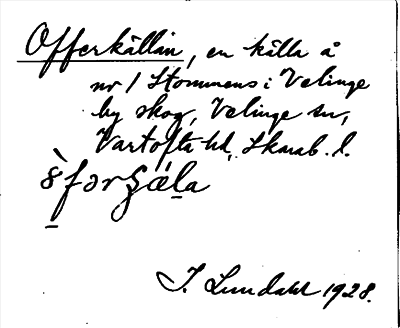 Offerkällan, en källa å
nr 1 Stommens i Velinge
by skog, Velinge sn,
Vartofta hd, Skarab. l.
I. Lundahl 1928.